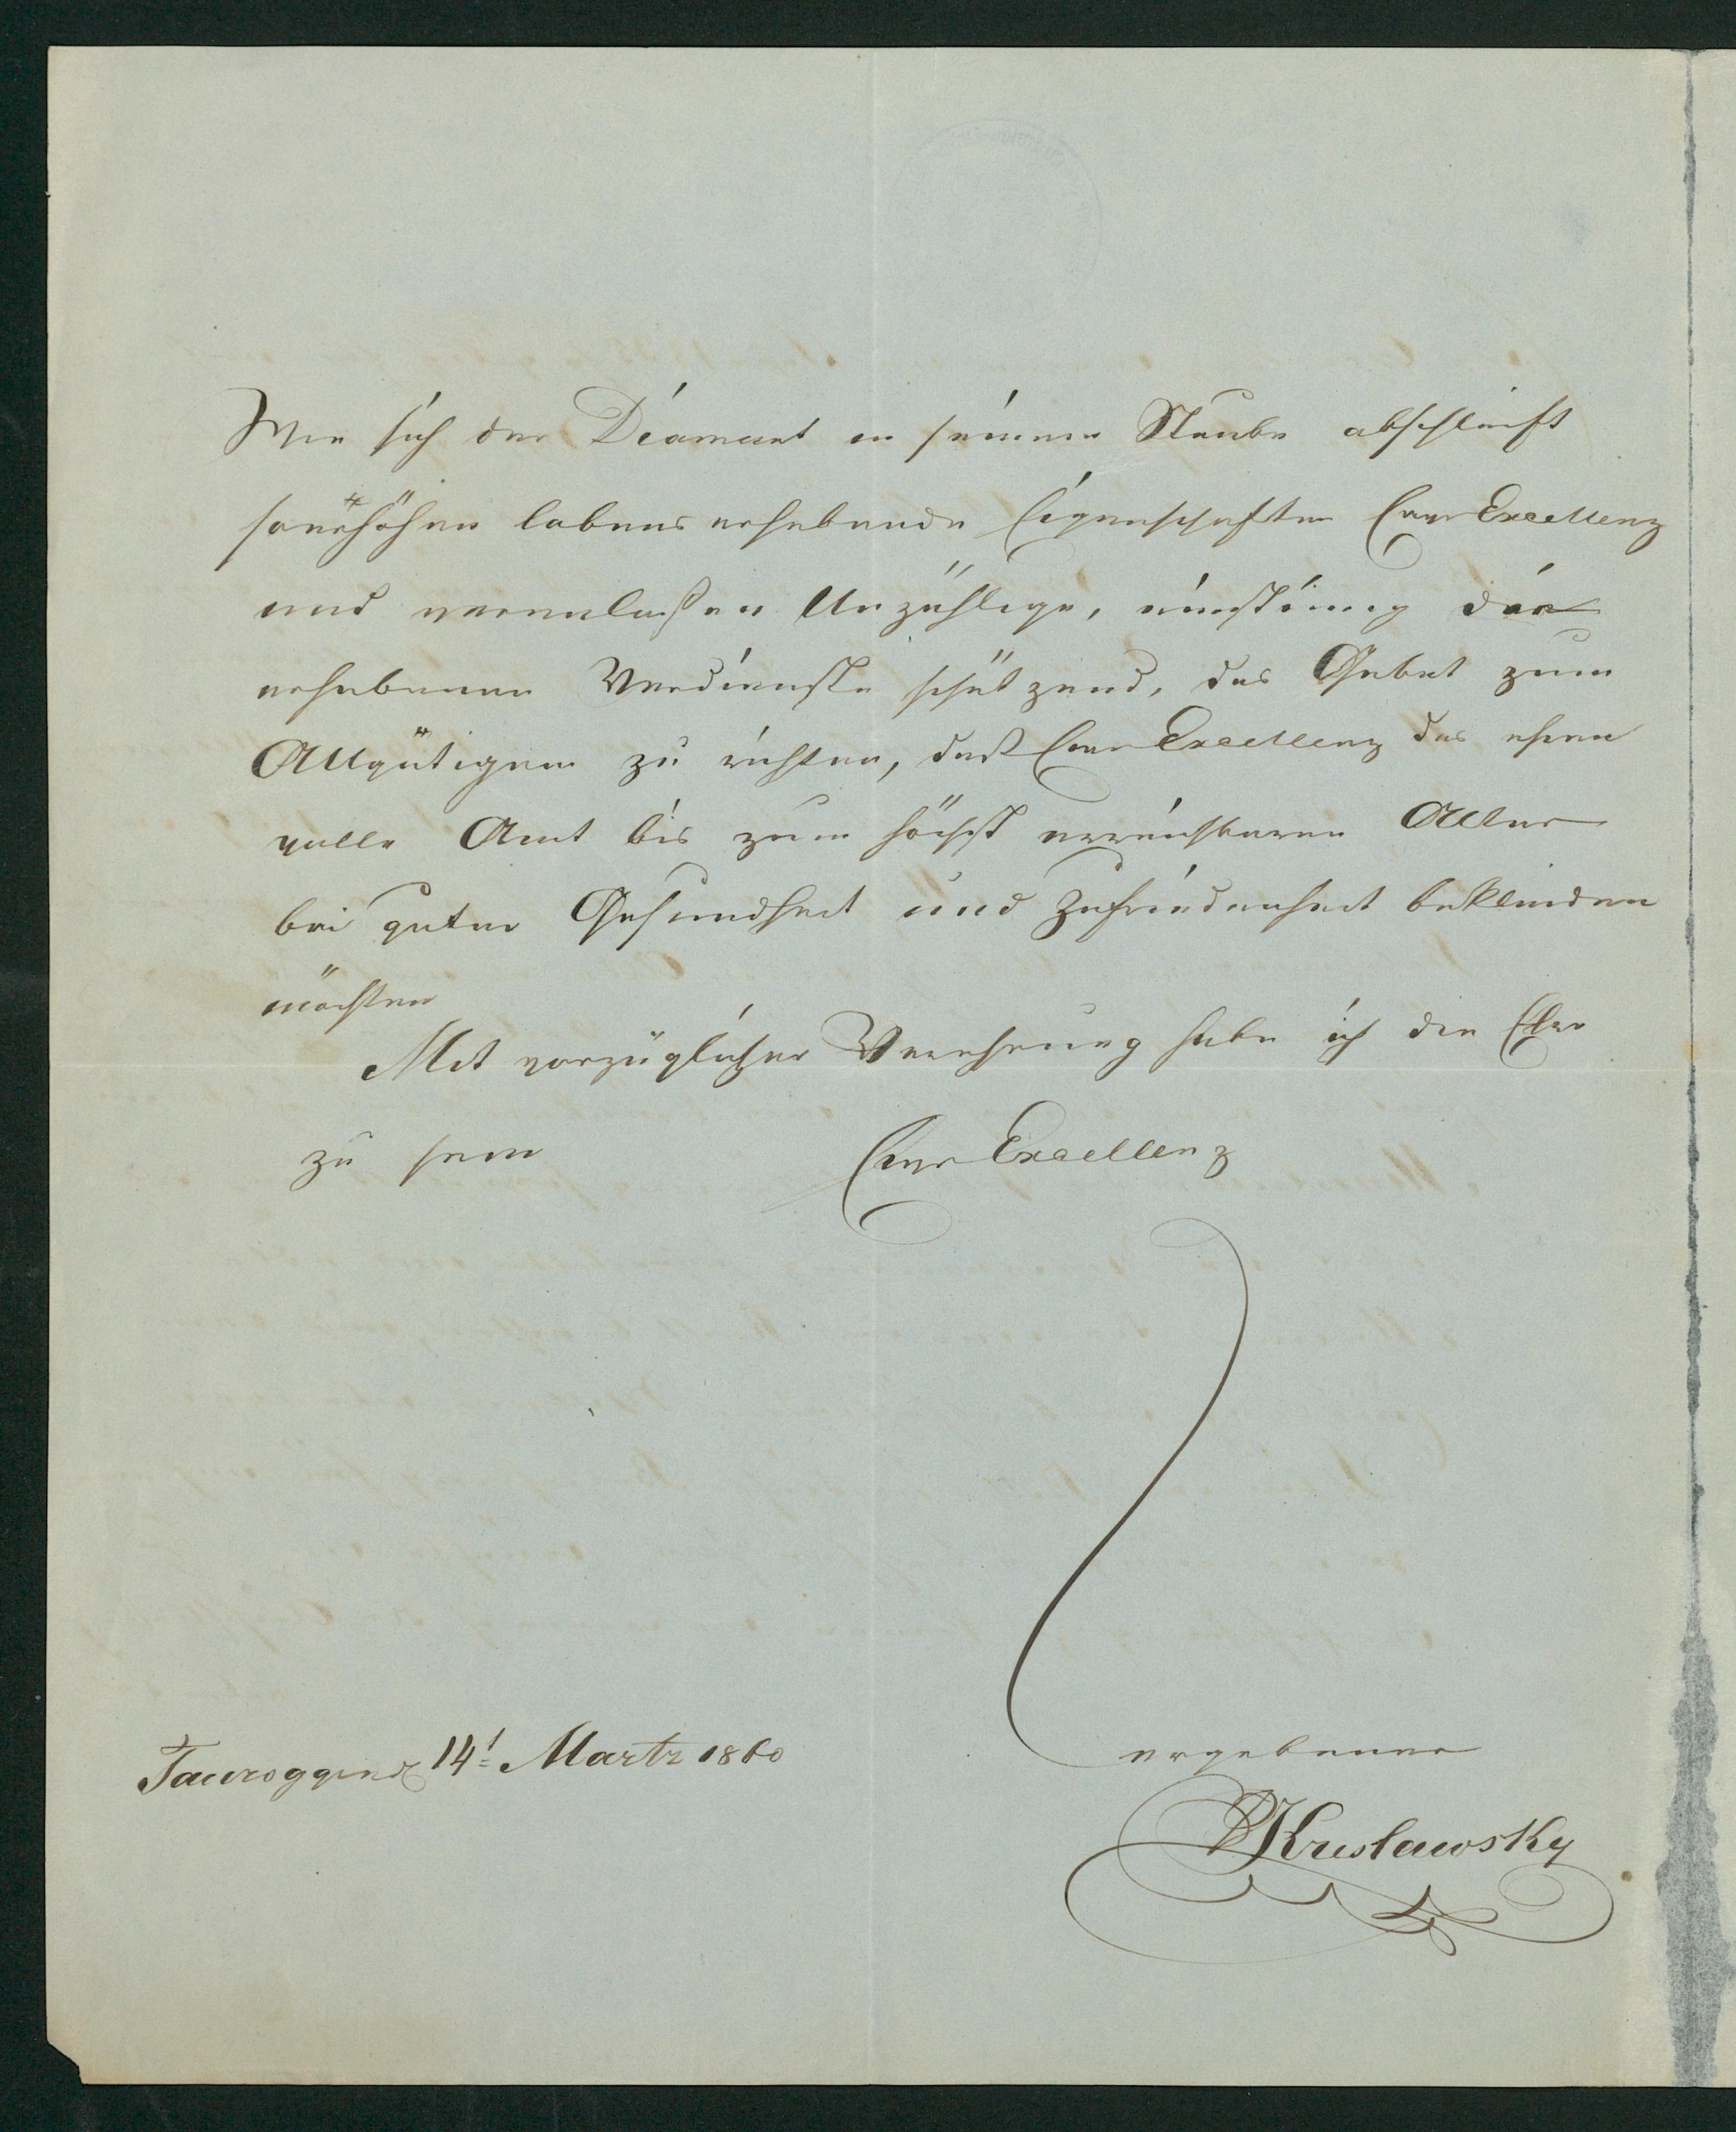 Wie sich der Diamant in seinem Staube abschleift
so erhöhen lobenserhebende Eigenschaften Euer Excellenz
und veranlaßen Unzählige, einstimig die
erhabenen Verdienste schätzend, das Gebet zum
Allgütigen zu richten, daß Euer Excellenz das ehren
volle Amt bis zum höchst erreichbaren Alter
bei guter Gesundheit und Zufriedenheit bekleiden
möchten
Mit vorzüglicher Verehrung habe ich die Ehre
zu sein Euer Excellenz
ergebener
Tauroggen d 14t Martz 1860
Kruslawsky